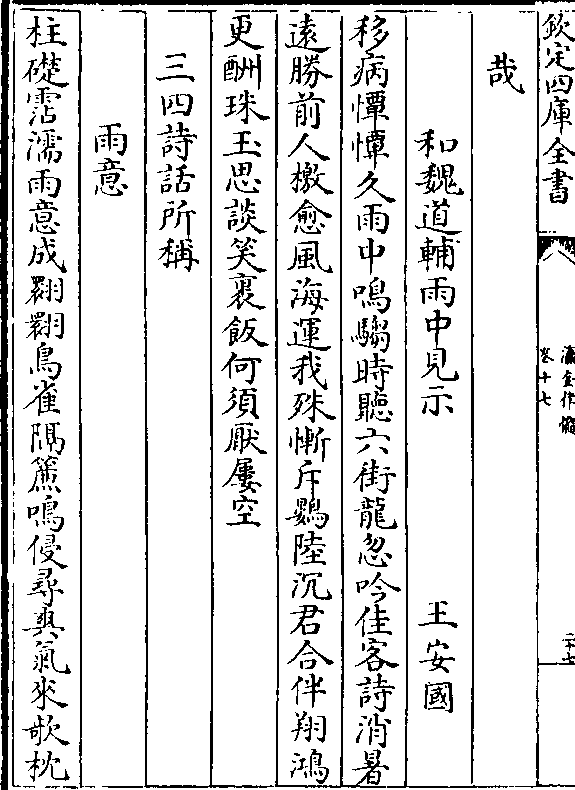 欽定四庫全書
瀛奎律髓
卷十七
二十七
哉
和魏道輔雨中見示 王安國
移病憚憚久雨中鳴騶時聽六街龍忽吟佳客詩消暑
遠勝前人檄愈風海運我殊慚斥鷃陸沉君合伴翔鴻
更酬珠玉思談笑裹飯何須厭屢空
三四詩話所稱
雨意
柱礎霑濡雨意成翾翾鳥雀隔簾鳴侵尋爽氣來欹枕